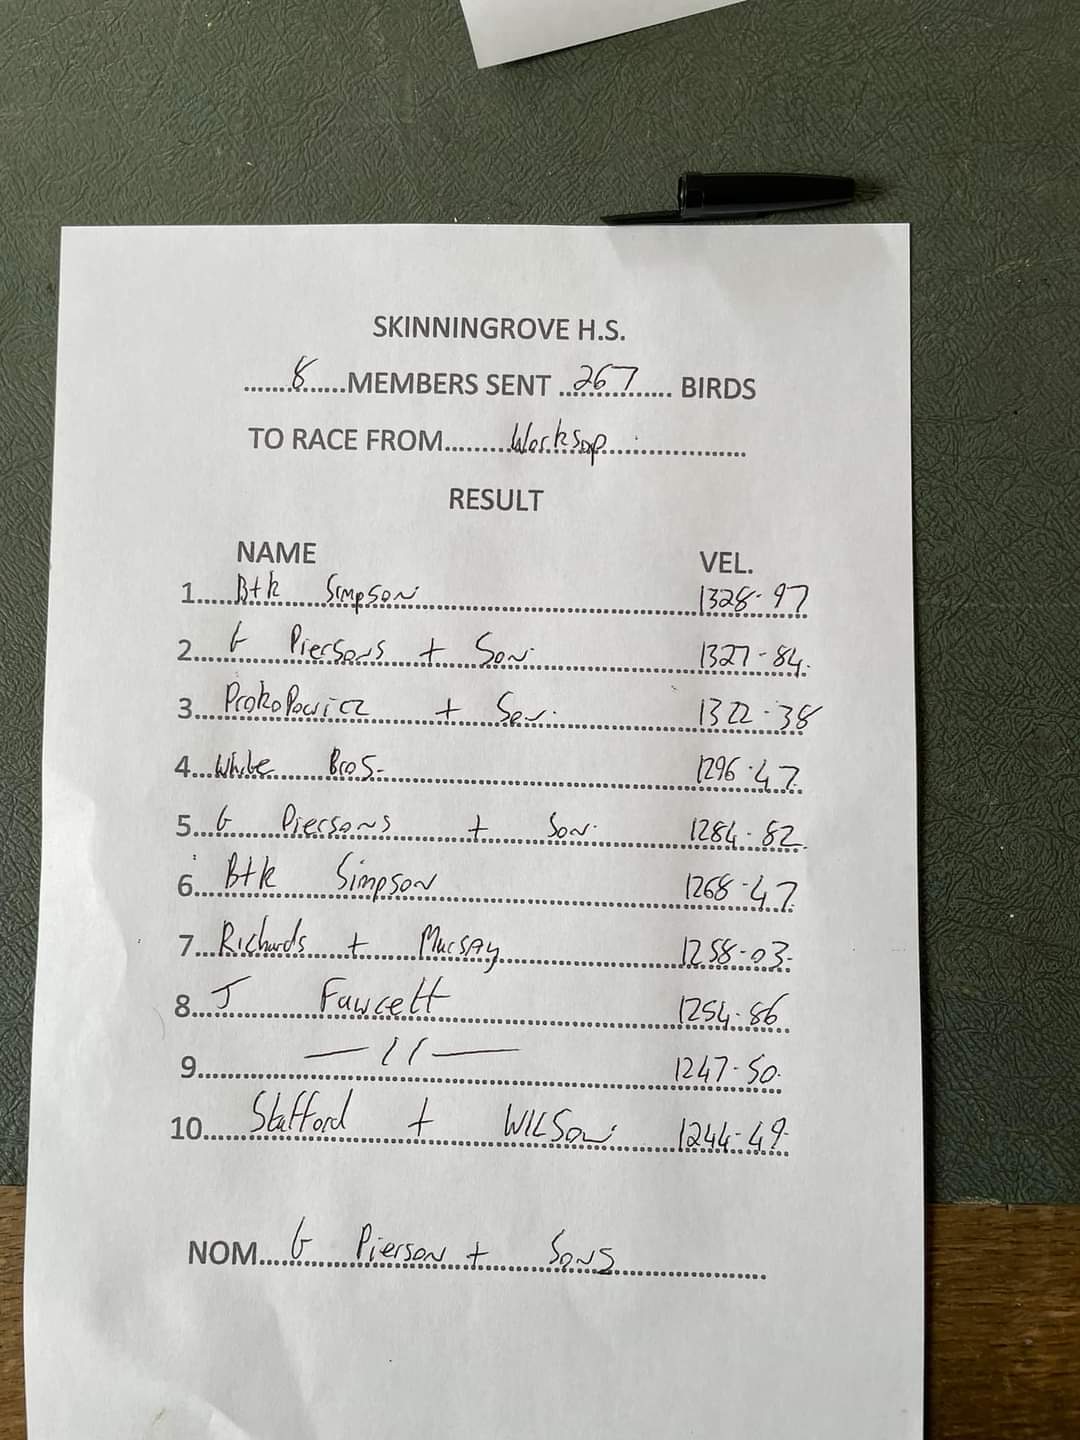 SKINNINGROVE H.S.
......8......MEMBERS SENT ..267.......... BIRDS
TO RACE FROM.........Worksop......................
RESULT
NAME VEL.
1.....B+k Simpson 1328-97
2..... G Piersons + Son. 1327-84.
3...Prokopowicz + Son. 1322-38
4...White Bros. 1296-47
5...G Piersons + Son. 1284-82
6....B+k Simpson 1268-47
7...Richards + Murray 1258-03-
8...J Fawcett 1254-86
9... —11— 1247-50.
10.... Stafford + WILSON. 1244-49-
NOM....G Pierson + Sons